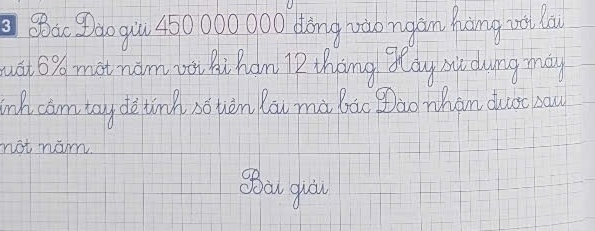 3 Bác Đào gửi 450 000 000 đồng vào ngân hàng với lãi
uất 6% một năm với kì hạn 12 tháng. Hãy sử dụng máy
ính cầm tay để tính số tiền lãi mà bác Đào nhận được sau
một năm.
Bài giải